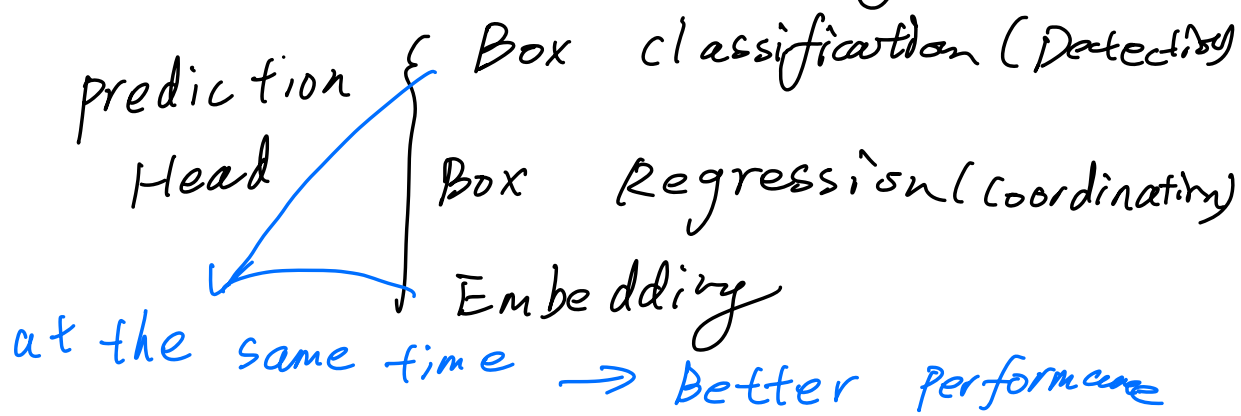 prediction Head
Box classification (Detecting)
Box Regression (Coordination)
Embedding
at the same time → Better performance